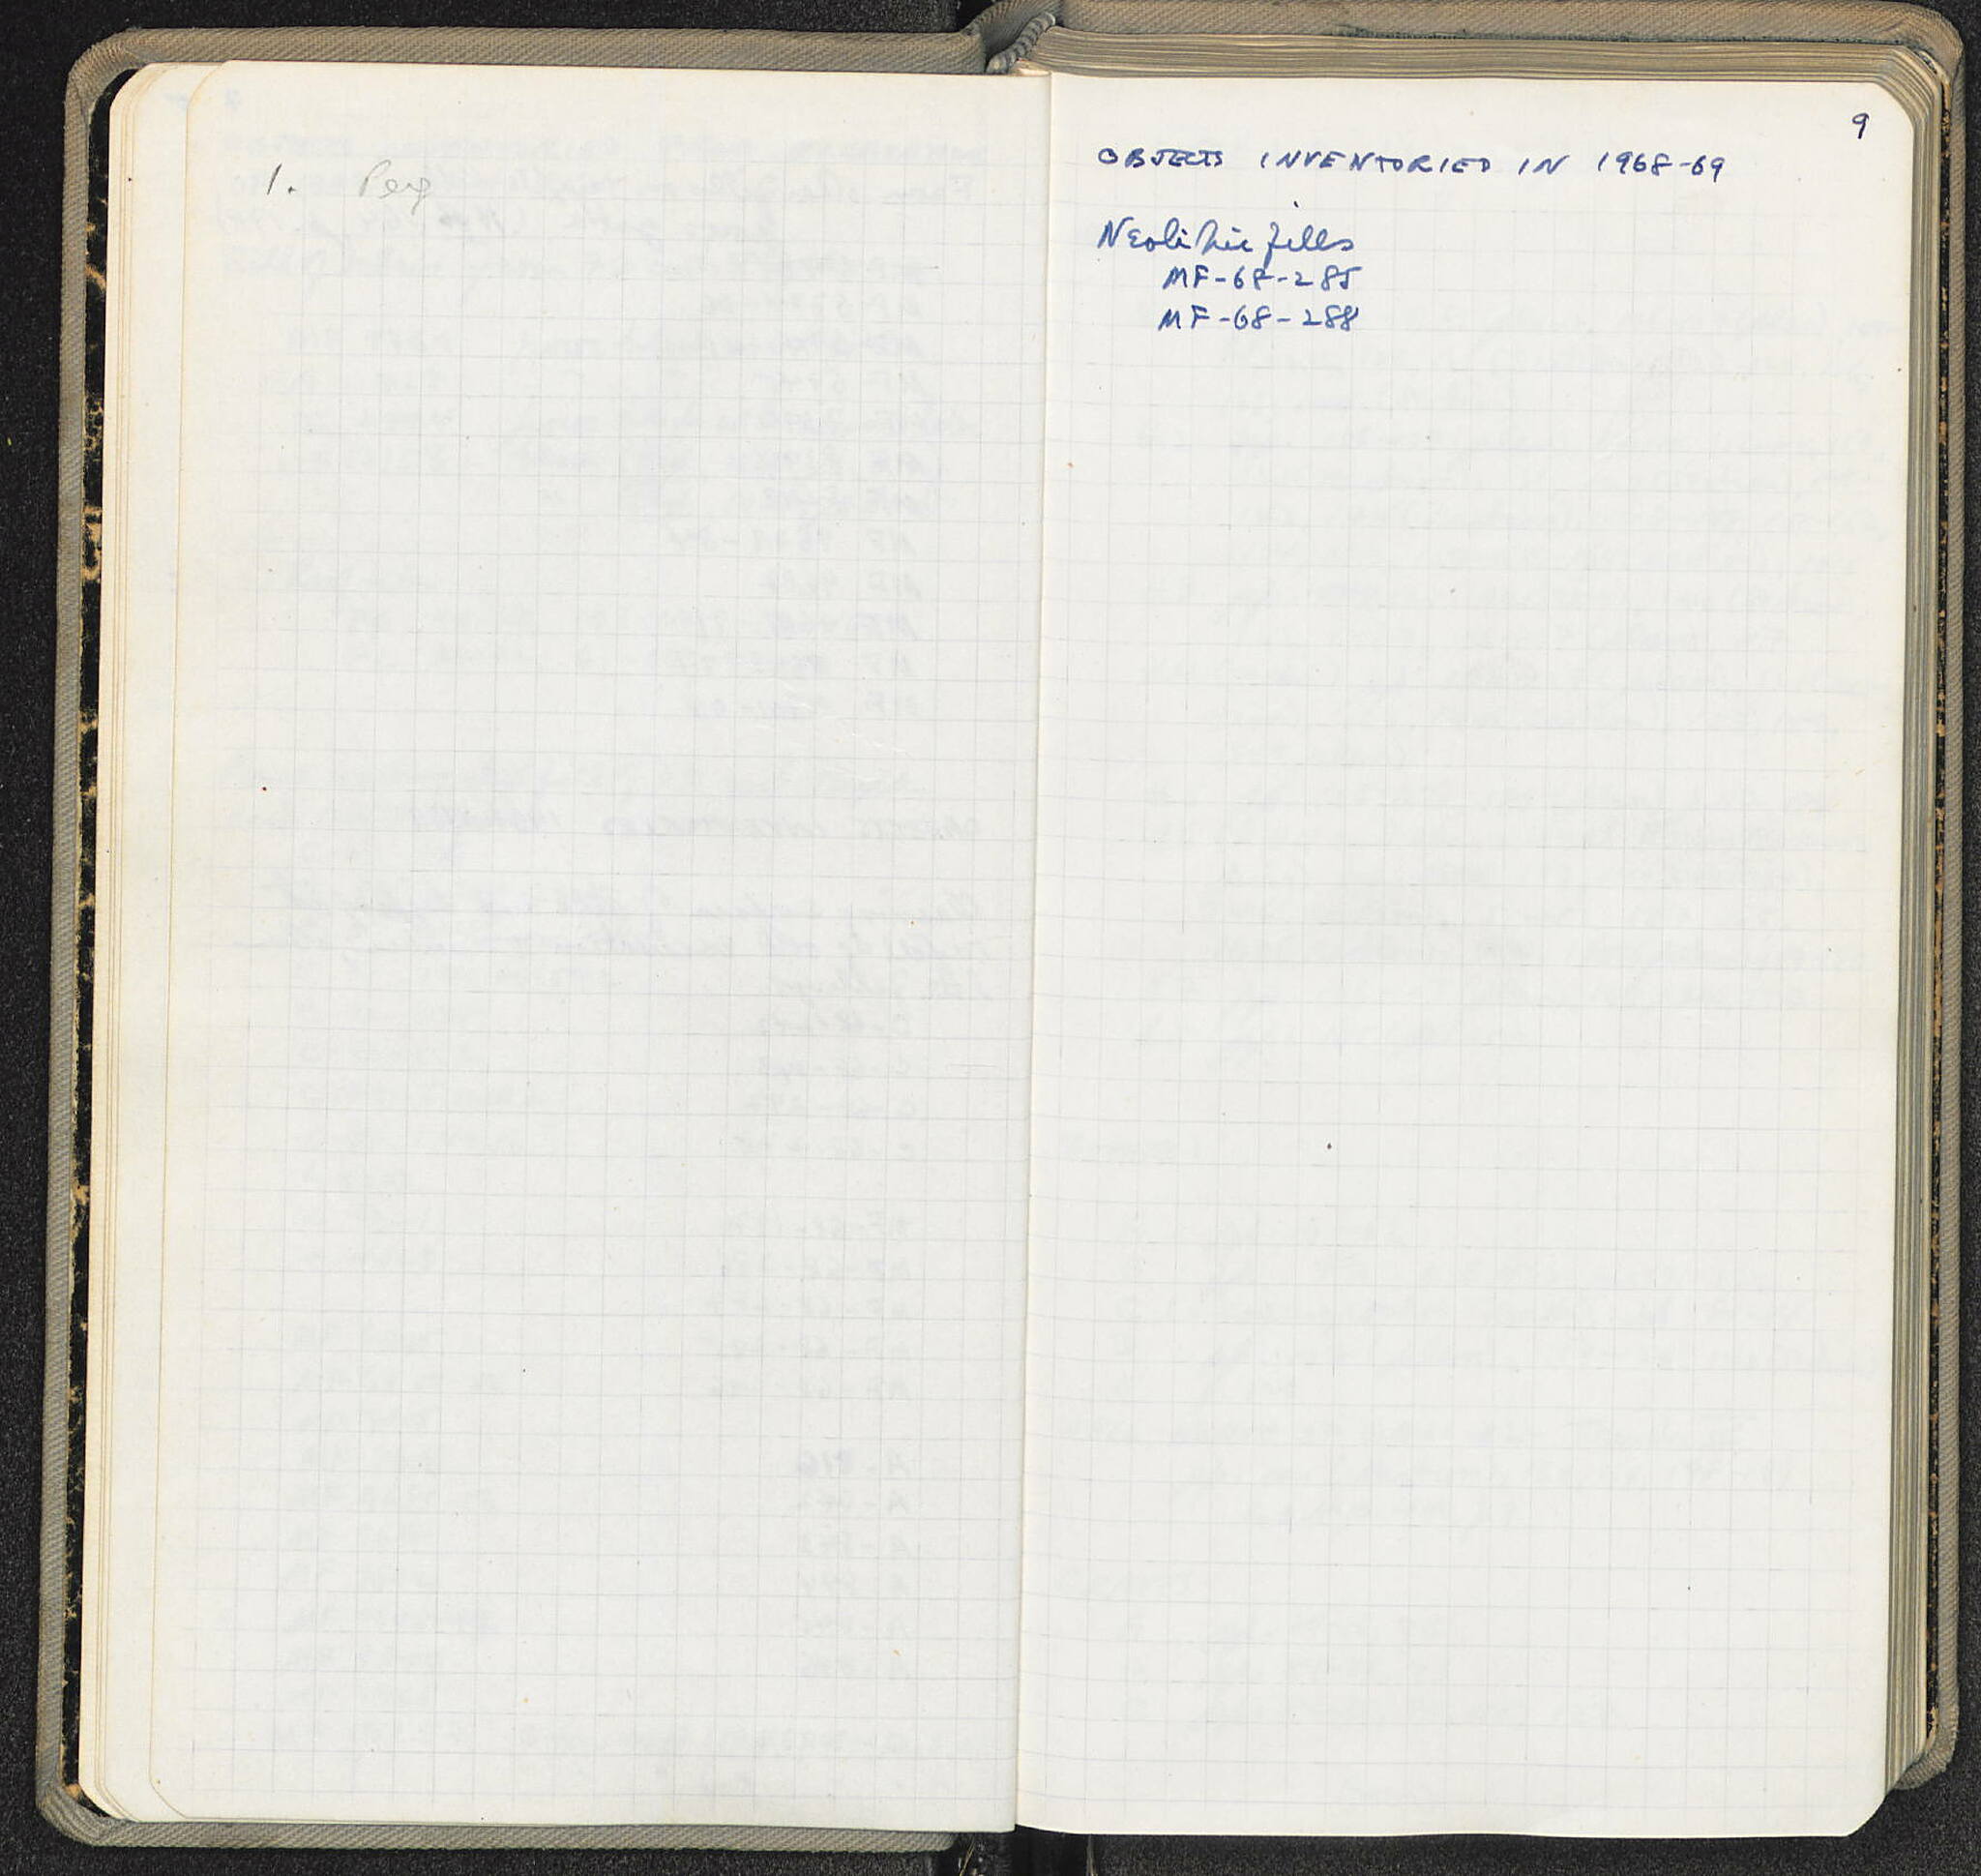 1. Peg
9
OBJECTS INVENTORIED IN 1968-69
Neolithic fills
MF-68-285
MF-68-288